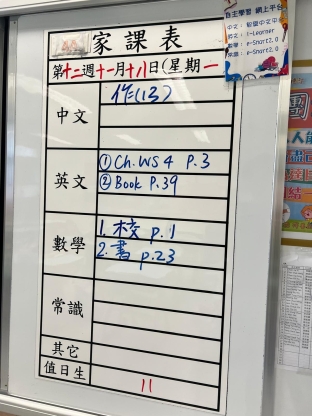 家課表
第十二週十一月十八日(星期一
中文
作(13)
英文
① Ch. WS 4 P.3
② Book P.39
數學
1. 校 p.1
2. 書 p.23
常識
其它
值日生
11
自主學習 網上平台
英文: i-Learner
數學: e-Smart2.0
常識: e-Smart2.0